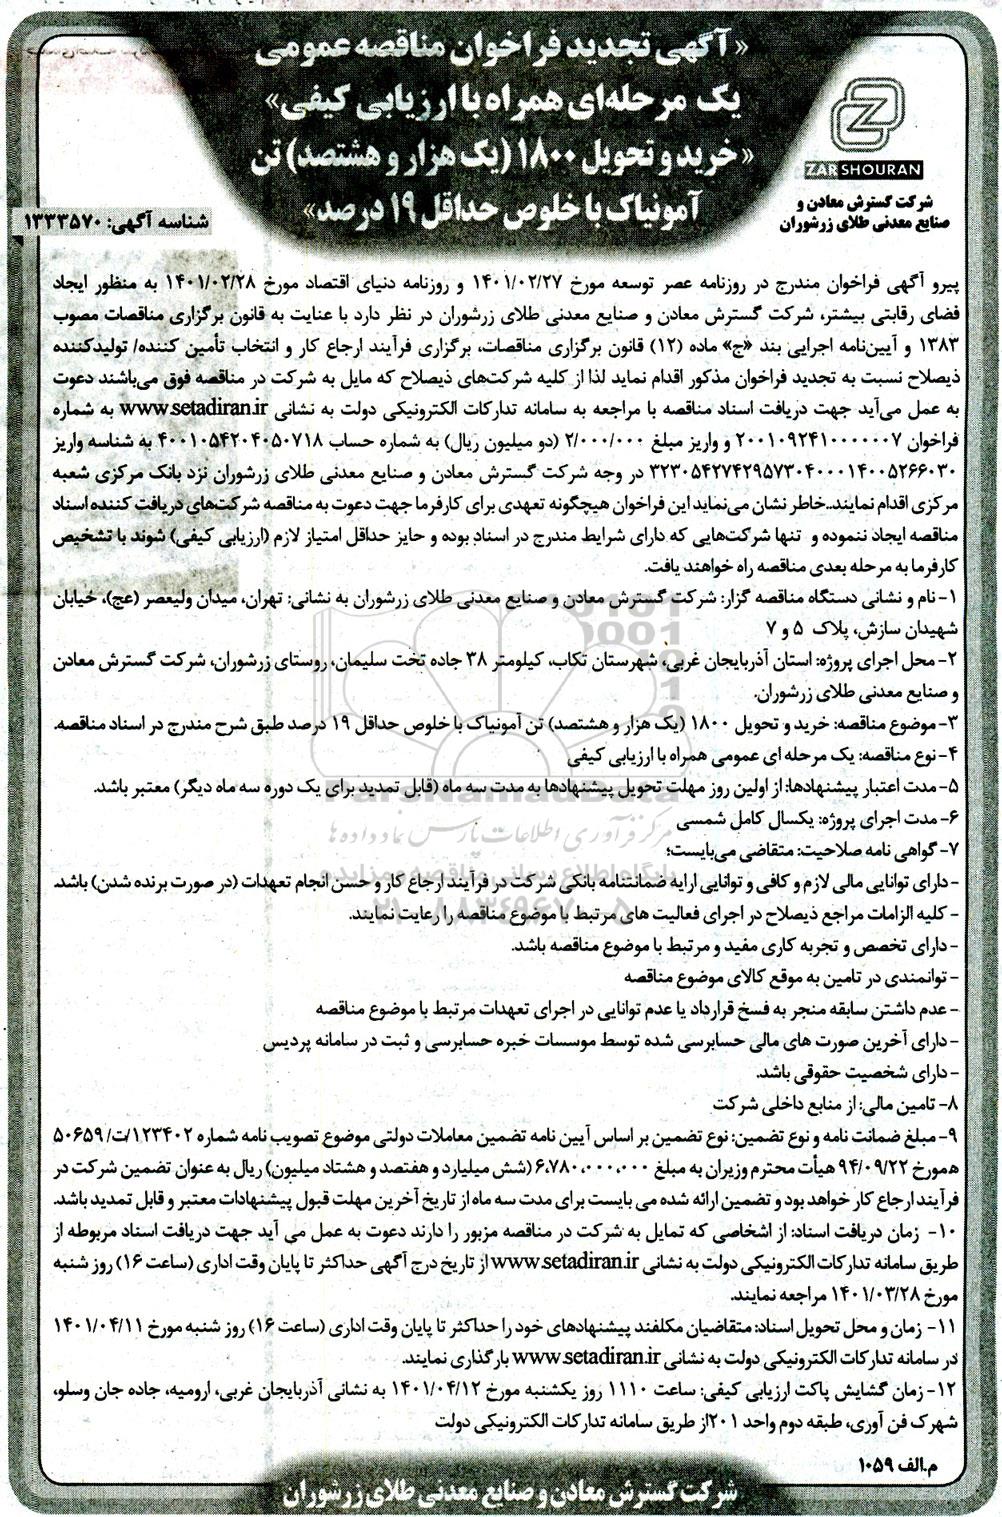 «آگهی تجدید فراخوان مناقصه عمومی
یک مرحله‌ای همراه با ارزیابی کیفی»
«خرید و تحویل ۱۸۰۰ (یک هزار و هشتصد) تن
آمونیاک با خلوص حداقل ۱۹ درصد»
ZARSHOURAN
شرکت گسترش معادن و
صنایع معدنی طلای زرشوران
شناسه آگهی: ۱۳۳۳۵۷۰
پیرو آگهی فراخوان مندرج در روزنامه عصر توسعه مورخ ۱۴۰۱/۰۲/۲۷ و روزنامه دنیای اقتصاد مورخ ۱۴۰۱/۰۲/۲۸ به منظور ایجاد
فضای رقابتی بیشتر، شرکت گسترش معادن و صنایع معدنی طلای زرشوران در نظر دارد با عنایت به قانون برگزاری مناقصات مصوب
۱۳۸۳ و آیین‌نامه اجرایی بند «ج» ماده (۱۲) قانون برگزاری مناقصات، برگزاری فرآیند ارجاع کار و انتخاب تأمین کننده/ تولیدکننده
ذیصلاح نسبت به تجدید فراخوان مذکور اقدام نماید لذا از کلیه شرکت‌های ذیصلاح که مایل به شرکت در مناقصه فوق می‌باشند دعوت
به عمل می‌آید جهت دریافت اسناد مناقصه با مراجعه به سامانه تدارکات الکترونیکی دولت به نشانی www.setadiran.ir به شماره
فراخوان ۲۰۰۱۰۹۲۴۱۰۰۰۰۰۰۷ و واریز مبلغ ۲/۰۰۰/۰۰۰ (دو میلیون ریال) به شماره حساب ۴۰۰۱۰۵۴۲۰۴۰۵۰۷۱۸ به شناسه واریز
۳۲۳۰۵۴۲۷۴۲۹۵۷۳۰۴۰۰۰۱۴۰۰۵۲۶۶۰۳۰ در وجه شرکت گسترش معادن و صنایع معدنی طلای زرشوران نزد بانک مرکزی شعبه
مرکزی اقدام نمایند..خاطر نشان می‌نماید این فراخوان هیچگونه تعهدی برای کارفرما جهت دعوت به مناقصه شرکت‌های دریافت کننده اسناد
مناقصه ایجاد ننموده و تنها شرکت‌هایی که دارای شرایط مندرج در اسناد بوده و حایز حداقل امتیاز لازم (ارزیابی کیفی) شوند با تشخیص
کارفرما به مرحله بعدی مناقصه راه خواهند یافت.
۱- نام و نشانی دستگاه مناقصه گزار: شرکت گسترش معادن و صنایع معدنی طلای زرشوران به نشانی: تهران، میدان ولیعصر (عج)، خیابان
شهیدان سازش، پلاک ۵ و ۷
۲- محل اجرای پروژه: استان آذربایجان غربی، شهرستان تکاب، کیلومتر ۳۸ جاده تخت سلیمان، روستای زرشوران، شرکت گسترش معادن
و صنایع معدنی طلای زرشوران.
۳- موضوع مناقصه: خرید و تحویل ۱۸۰۰ (یک هزار و هشتصد) تن آمونیاک با خلوص حداقل ۱۹ درصد طبق شرح مندرج در اسناد مناقصه.
۴- نوع مناقصه: یک مرحله ای عمومی همراه با ارزیابی کیفی
۵- مدت اعتبار پیشنهادها: از اولین روز مهلت تحویل پیشنهادها به مدت سه ماه (قابل تمدید برای یک دوره سه ماه دیگر) معتبر باشد.
ParsNamadData
۶- مدت اجرای پروژه: یکسال کامل شمسی
مرکز فرآوری اطلاعات پارس نماد داده‌ها
۷- گواهی نامه صلاحیت: متقاضی می‌بایست؛
- دارای توانایی مالی لازم و کافی و توانایی ارایه ضمانتنامه بانکی شرکت در فرآیند ارجاع کار و حسن انجام تعهدات (در صورت برنده شدن) باشد.
- کلیه الزامات مراجع ذیصلاح در اجرای فعالیت های مرتبط با موضوع مناقصه را رعایت نمایند.
- دارای تخصص و تجربه کاری مفید و مرتبط با موضوع مناقصه باشد.
- توانمندی در تامین به موقع کالای موضوع مناقصه
- عدم داشتن سابقه منجر به فسخ قرارداد یا عدم توانایی در اجرای تعهدات مرتبط با موضوع مناقصه
- دارای آخرین صورت های مالی حسابرسی شده توسط موسسات خبره حسابرسی و ثبت در سامانه پردیس
- دارای شخصیت حقوقی باشد.
۸- تامین مالی: از منابع داخلی شرکت
۹- مبلغ ضمانت نامه و نوع تضمین: نوع تضمین بر اساس آیین نامه تضمین معاملات دولتی موضوع تصویب نامه شماره ۱۲۳۴۰۲/ت/۵۰۶۵۹
ه‍ مورخ ۹۴/۰۹/۲۲ هیأت محترم وزیران به مبلغ ۶،۷۸۰،۰۰۰،۰۰۰ (شش میلیارد و هفتصد و هشتاد میلیون) ریال به عنوان تضمین شرکت در
فرآیند ارجاع کار خواهد بود و تضمین ارائه شده می بایست برای مدت سه ماه از تاریخ آخرین مهلت قبول پیشنهادات معتبر و قابل تمدید باشد.
۱۰- زمان دریافت اسناد: از اشخاصی که تمایل به شرکت در مناقصه مزبور را دارند دعوت به عمل می آید جهت دریافت اسناد مربوطه از
طریق سامانه تدارکات الکترونیکی دولت به نشانی www.setadiran.ir از تاریخ درج آگهی حداکثر تا پایان وقت اداری (ساعت ۱۶) روز شنبه
مورخ ۱۴۰۱/۰۳/۲۸ مراجعه نمایند.
۱۱- زمان و محل تحویل اسناد: متقاضیان مکلفند پیشنهادهای خود را حداکثر تا پایان وقت اداری (ساعت ۱۶) روز شنبه مورخ ۱۴۰۱/۰۴/۱۱
در سامانه تدارکات الکترونیکی دولت به نشانی www.setadiran.ir بارگذاری نمایند.
۱۲- زمان گشایش پاکت ارزیابی کیفی: ساعت ۱۱۱۰ روز یکشنبه مورخ ۱۴۰۱/۰۴/۱۲ به نشانی آذربایجان غربی، ارومیه، جاده جان وسلو،
شهرک فن آوری، طبقه دوم واحد ۲۰۱از طریق سامانه تدارکات الکترونیکی دولت
م.الف ۱۰۵۹
شرکت گسترش معادن و صنایع معدنی طلای زرشوران